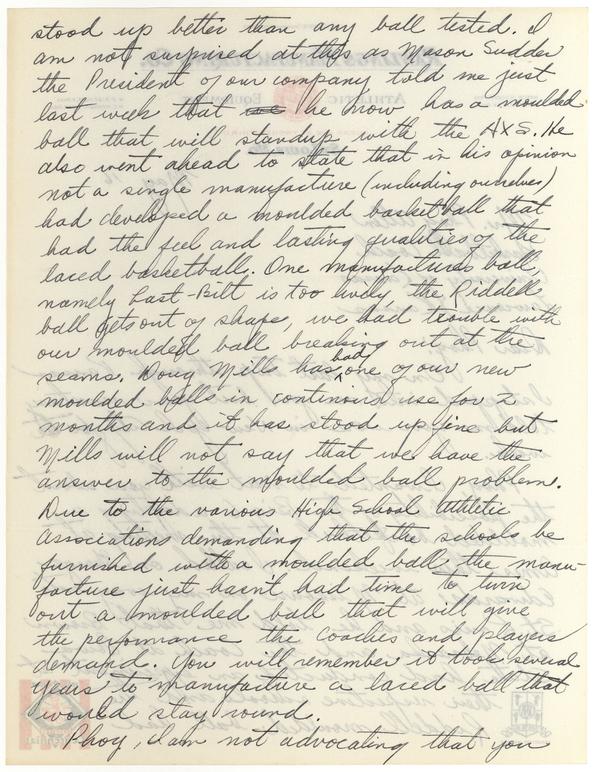 stood up better than any ball tested. I
am not surprised at this as Mason Sudder
the President of our company told me just
last week that he now has a moulded
ball that will standup with the AXS. He
also went ahead to state that in his opinion
not a single manufacture (including ourselves)
had developed a moulded basketball that
had the feel and lasting qualities of the
laced basketball. One manufactures ball,
namely Last-Bilt is too lively, the Riddell
ball gets out of shape, we had trouble with
our moulded ball breaking out at the
seams. Doug Mills has had one of our new
moulded balls in continous use for 2
months and it has stood up fine but
Mills will not say that we have the
answer to the moulded ball problem.
Due to the various High School Athletic
Associations demanding that the schools be
furnished with a moulded ball, the manu-
facture just hasn't had time to turn
out a moulded ball that will give
the performance the coaches and players
demand. You will remember it took several
years to manufacture a laced ball that
would stay round.
Phog, I am not advocating that you